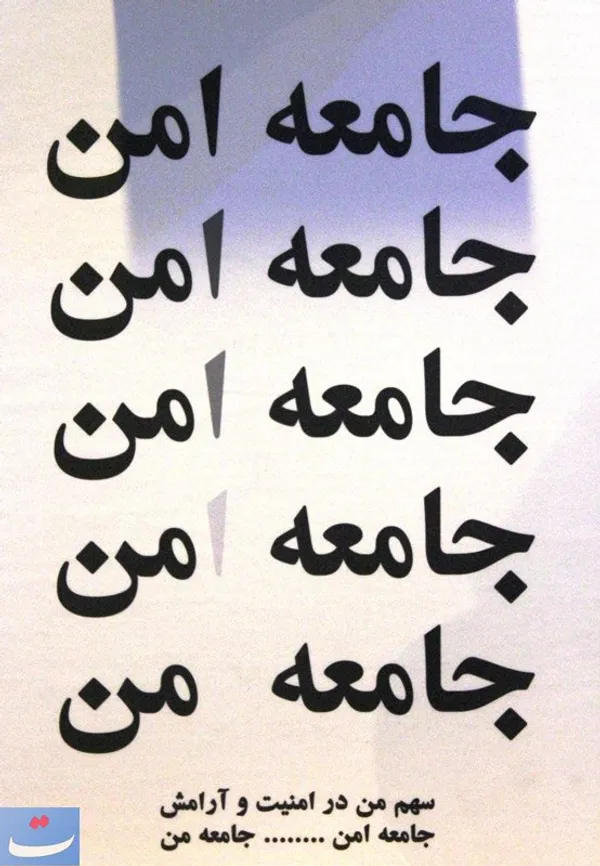 جامعه امن
جامعه امن
جامعه امن
جامعه امن
جامعه من
سهم من در امنیت و آرامش
جامعه امن ........ جامعه من
ت